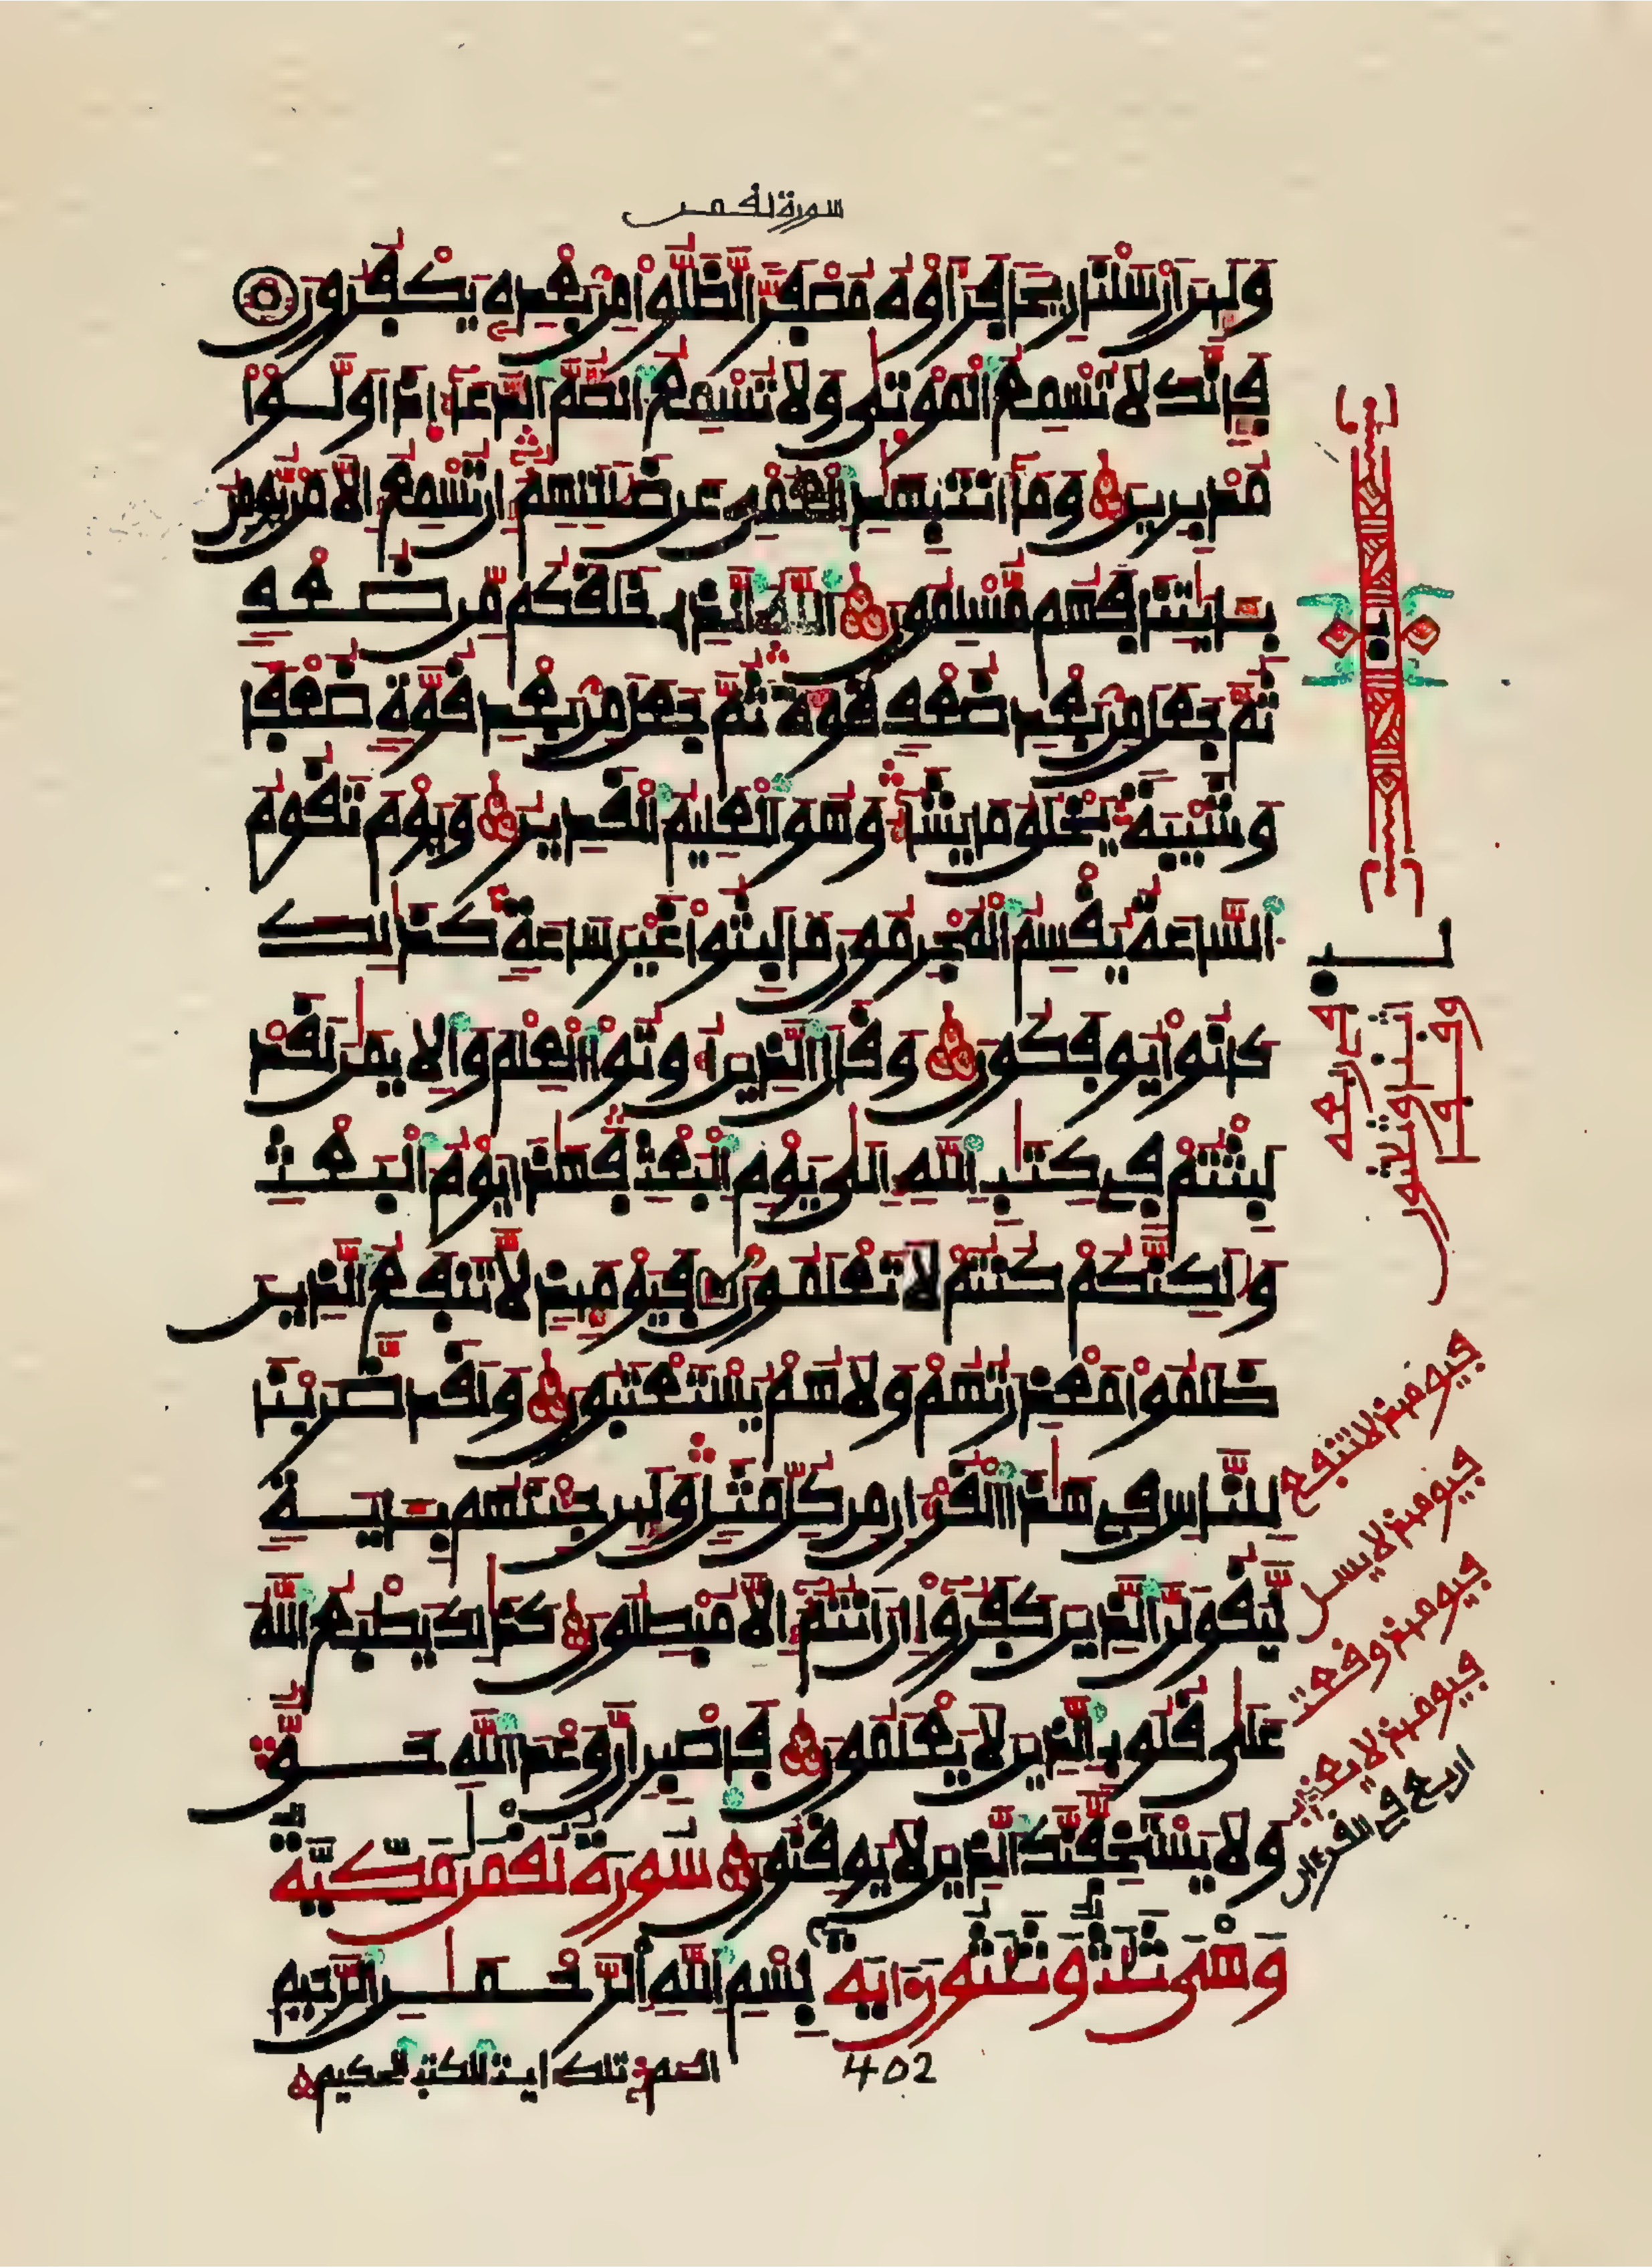 سورة لقمن
وَلَئِنْ اَرْسَلْنَا رِيحًا فَرَأَوْهُ مُصْفَرًّا لَّظَلُّواْ مِنۢ بَعْدِهِ يَكْفُرُونَ
فَإِنَّكَ لَا تُسْمِعُ الْمَوْتَىٰ وَلَا تُسْمِعُ الصُّمَّ الدُّعَآءَ اِذَا وَلَّوْاْ
مُدْبِرِينَ وَمَآ أَنتَ بِهَٰدِ الْعُمْيِ عَن ضَلَٰلَتِهِمُ إِن تُسْمِعُ إِلَّا مَن يُومِنُ
بِـَٔايَٰتِنَا فَهُم مُّسْلِمُونَ اللَّهُ الَّذِي خَلَقَكُم مِّن ضُعْفٍ
ثُمَّ جَعَلَ مِنۢ بَعْدِ ضُعْفٍ قُوَّةً ثُمَّ جَعَلَ مِنۢ بَعْدِ قُوَّةٍ ضُعْفًا
وَشَيْبَةً يَخْلُقُ مَا يَشَآءُ وَهُوَ الْعَلِيمُ الْقَدِيرُ وَيَوْمَ تَقُومُ
السَّاعَةُ يُقْسِمُ الْمُجْرِمُونَ مَا لَبِثُواْ غَيْرَ سَاعَةٍ كَذَٰلِكَ
كَانُواْ يُوفَكُونَ وَقَالَ الَّذِينَ أُوتُواْ الْعِلْمَ وَالِايمَٰنَ لَقَدْ
لَبِثْتُمْ فِي كِتَٰبِ اللَّهِ إِلَىٰ يَوْمِ الْبَعْثِ فَهَٰذَا يَوْمُ الْبَعْثِ
وَلَٰكِنَّكُمْ كُنتُمْ لَا تَعْلَمُونَ فَيَوْمَئِذٍ لَّا تَنفَعُ الَّذِينَ
ظَلَمُواْ مَعْذِرَتُهُمْ وَلَا هُمْ يُسْتَعْتَبُونَ وَلَقَدْ ضَّرَبْنَا
لِلنَّاسِ فِي هَٰذَا الْقُرْءَانِ مِن كُلِّ مَثَلٍ وَلَئِن جِئْتَهُم بِـَٔايَةٍ
لَّيَقُولَنَّ الَّذِينَ كَفَرُواْ إِنَ اَنتُمُ إِلَّا مُبْطِلُونَ كَذَٰلِكَ يَطْبَعُ اللَّهُ
عَلَىٰ قُلُوبِ الَّذِينَ لَا يَعْلَمُونَ فَاصْبِرِ انَّ وَعْدَ اللَّهِ حَقٌّ
وَلَا يَسْتَخِفَّنَّكَ الَّذِينَ لَا يُوقِنُونَ سُورَةُ لُقْمَٰنَ مَكِّيَّةٌ
وَهْيَ ثَلَٰثٌ وَثَلَٰثُونَ ءَايَة بِسْمِ اللَّهِ الرَّحْمَٰنِ الرَّحِيمِ
402
الم تلك ايت الكتب الحكيم
فيومئذ لا تنفع
فيومئذ لا يسل
فيومئذ وقعت
فيومئذ لا يعذب
اربع في القرءان